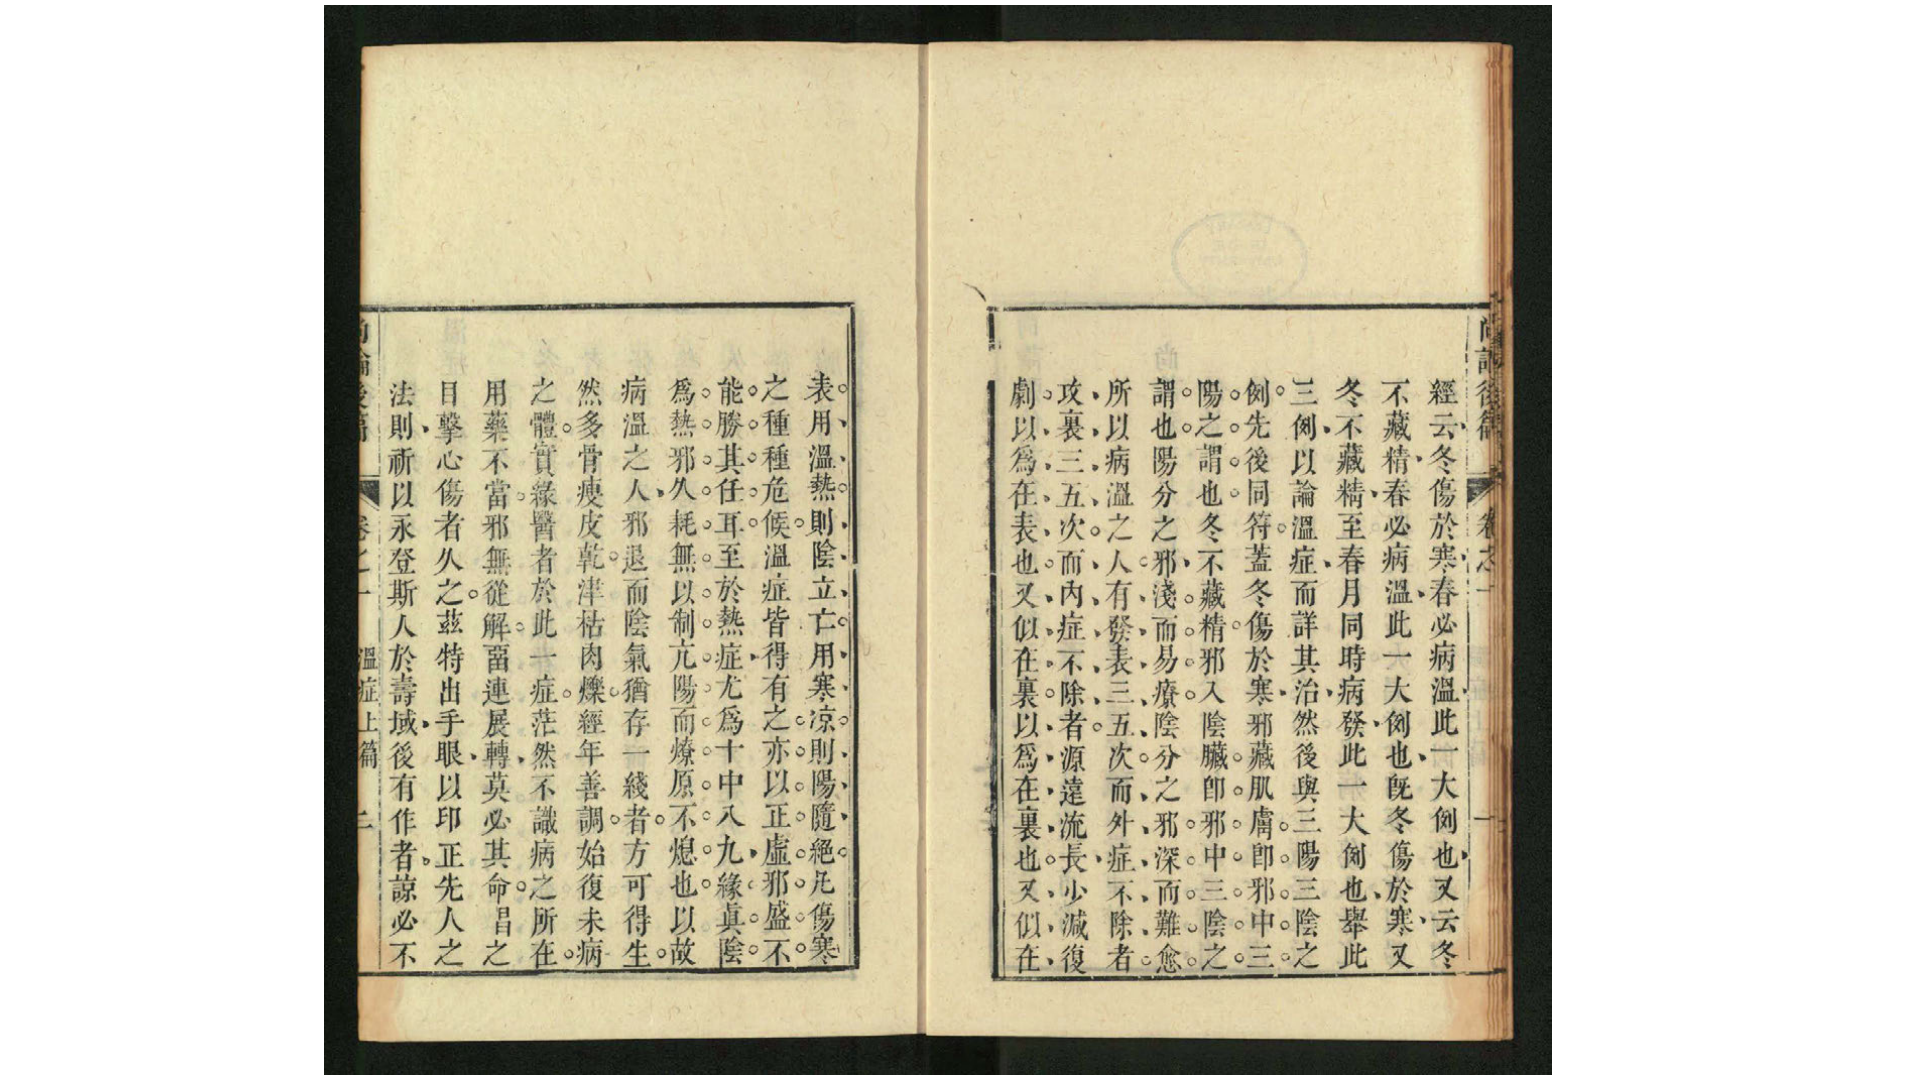 經云冬傷於寒春必病溫此一大例也又云冬
不藏精春必病溫此一大例也旣冬傷於寒又
冬不藏精至春月同時病發此一大例也舉此
三例以論溫症而詳其治然後與三陽三陰之
例先後同符蓋冬傷於寒邪藏肌膚卽邪中三
陽之謂也冬不藏精邪入陰臟卽邪中三陰之
謂也陽分之邪淺而易療陰分之邪深而難愈
所以病溫之人有發表三五次而外症不除者
攻裏三五次而內症不除者源遠流長少減復
劇以爲在表也又似在裏以爲在裏也又似在
尚論後篇
卷之一
一
表用溫熱則陰立亡用寒凉則陽隨絕凡傷寒
之種種危候溫症皆得有之亦以正虛邪盛不
能勝其任耳至於熱症尤爲十中八九緣眞陰
爲熱邪久耗無以制亢陽而燎原不熄也以故
病溫之人邪退而陰氣猶存一綫者方可得生
然多骨瘦皮乾津枯肉爍經年善調始復未病
之體實緣醫者於此一症茫然不識病之所在
用藥不當邪無從解畱連展轉莫必其命昌之
目擊心傷者久之茲特出手眼以印正先人之
法則祈以永登斯人於壽域後有作者諒必不
尚論後篇
卷之一
溫症上篇
二